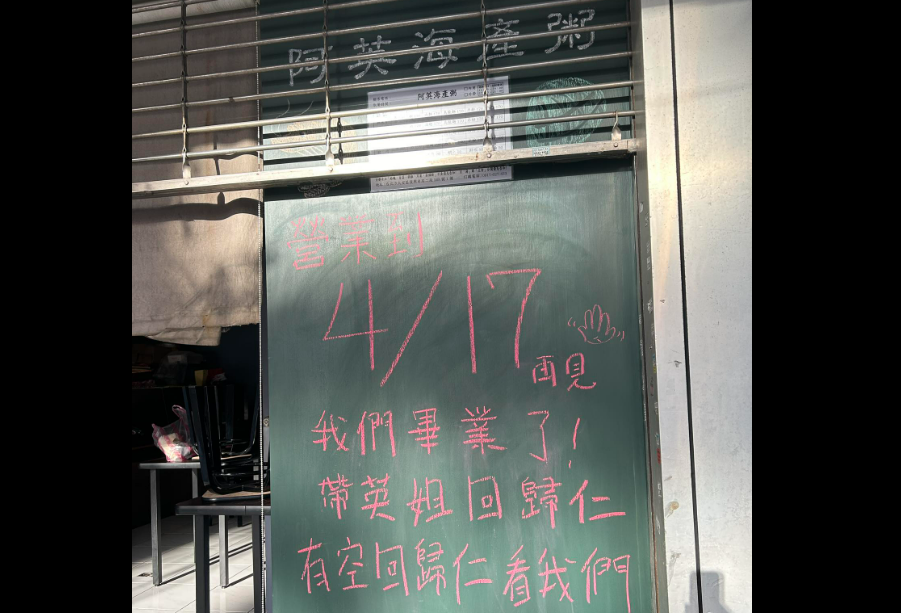 阿英海產粥
阿英海產粥
營業到
4/17
再見
我們畢業了!
帶英姐回歸仁
有空回歸仁看我們